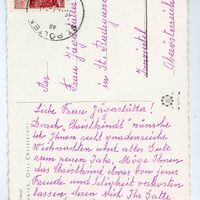 ST. PÖLTEN
An
Frau Jägerstätter
in St. Radegund
Oberösterreich
Liebe Frau Jägerstätter!
Durch „Christkindl" wünsche
ich Ihnen recht gnadenreiche
Weihnachten und alles Gute
zum neuen Jahr. Möge Ihnen
das Christkind etwas von jener
Freude und Seligkeit verkosten
lassen, deren sich Ihr Gatte